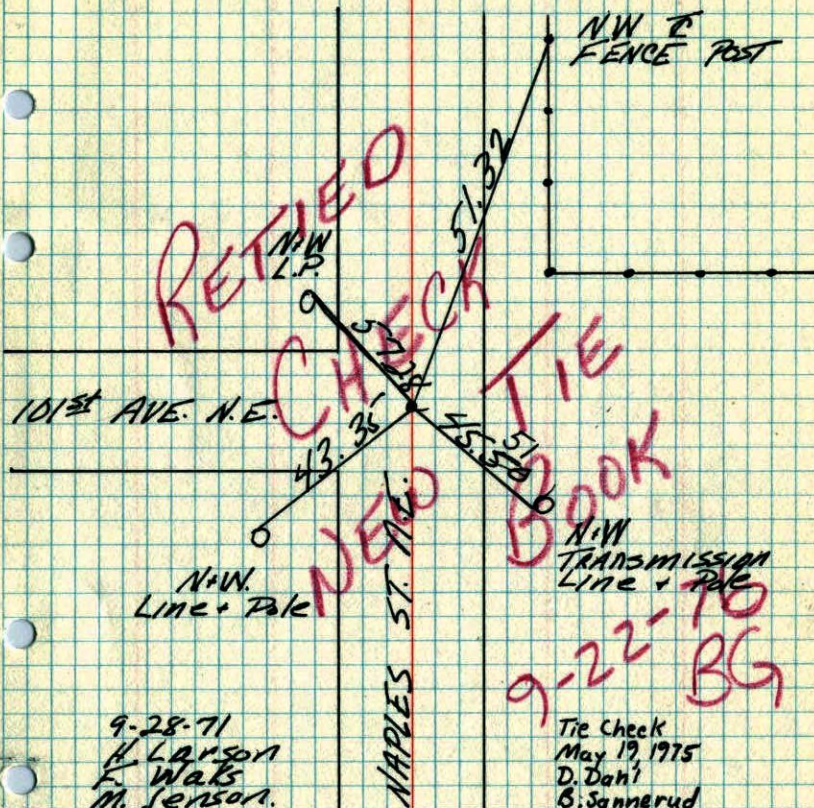 NW ℄
FENCE POST
51.32
RETIED
CHECK
NEW TIE
BOOK
9-22-76
BG
N+W
L.P.
57.28
101st AVE. N.E.
43.35
45.50
51
N+W.
Line + Pole
N+W
TRANSMISSION
Line + Pole
NAPLES ST. N.E.
9-28-71
H Larson
F. Waks
M. Jenson.
Tie Check
May 19, 1975
D. Dahl
B. Sannerud